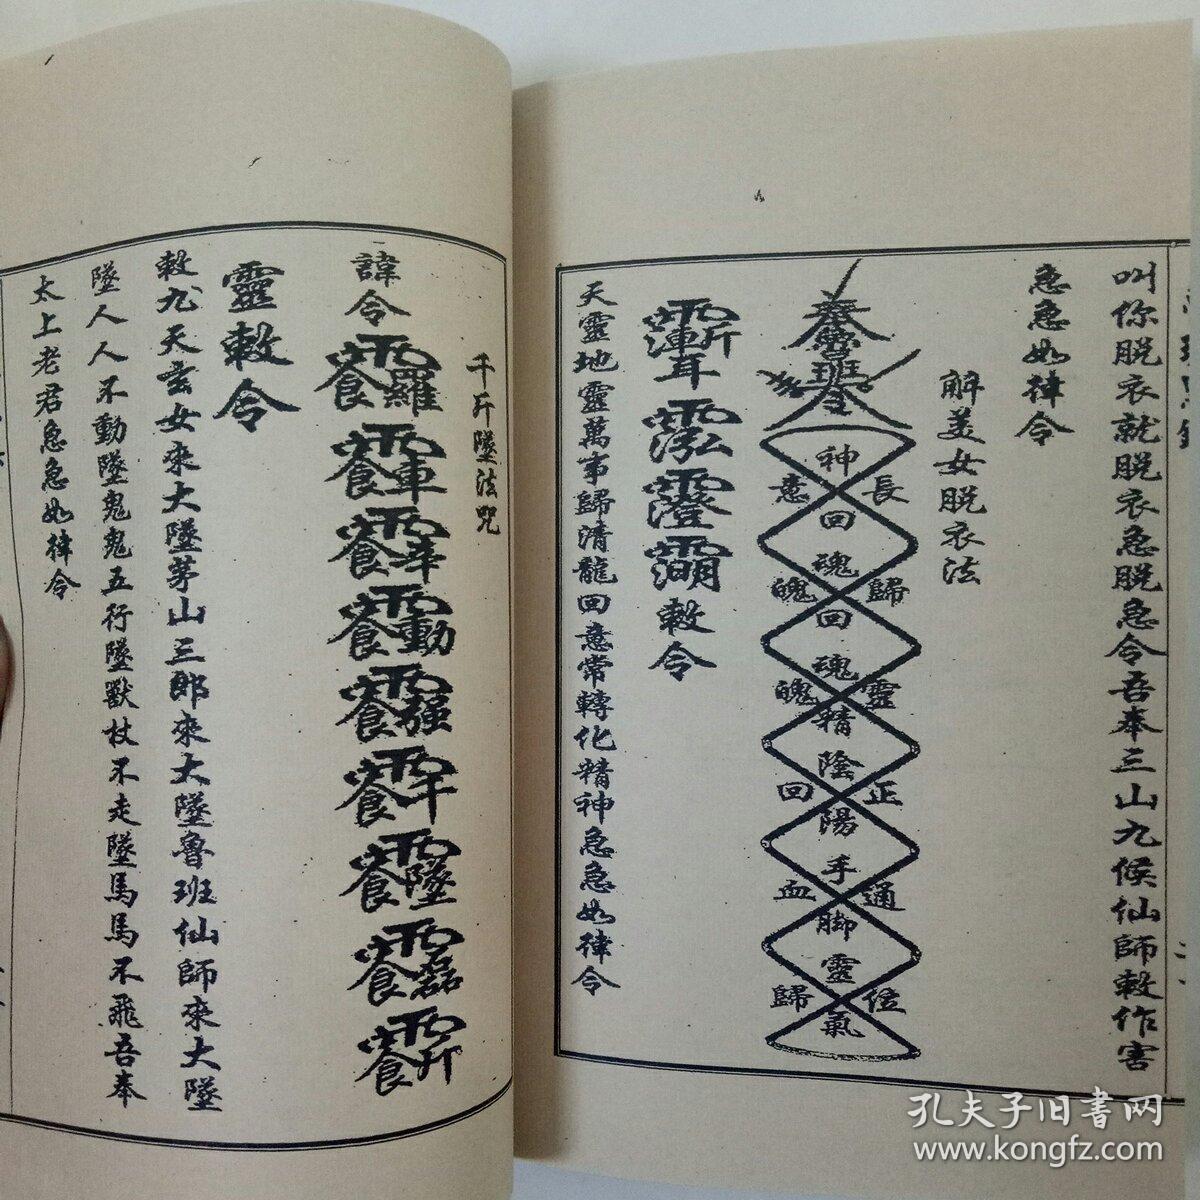 叫你脫衣就脫衣急脫急令吾奉三山九候仙師敕作害
急急如律令
解美女脫衣法
魯班令
神
長
意
回
魂
歸
魄
回
魂
靈
魄
精
陰
正
回
陽
手
通
血
脚
靈
位
歸
氣
敕令
天靈地靈萬事歸清龍回意常轉化精神急急如律令
千斤墜法咒
諱令
靈敕令
敕九天玄女來大墜茅山三郎來大墜魯班仙師來大墜
墜人人不動墜鬼鬼五行墜獸杖不走墜馬馬不飛吾奉
太上老君急急如律令
孔夫子旧书网
www.kongfz.com